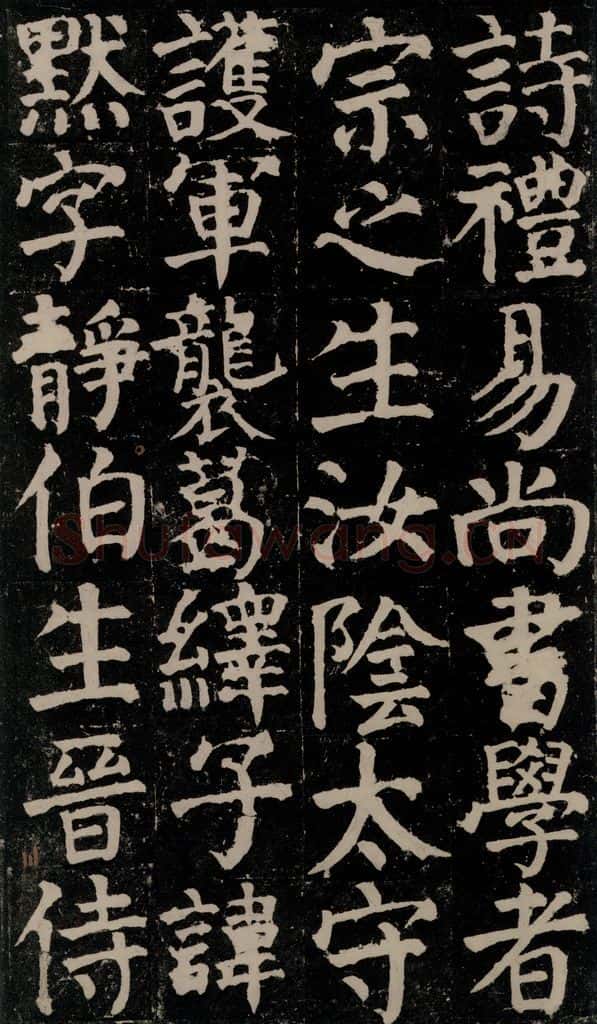 詩禮易尚書學者
宗之生汝陰太守
護軍襲葛繹子諱
默字靜伯生晉侍
Shufawang.CN